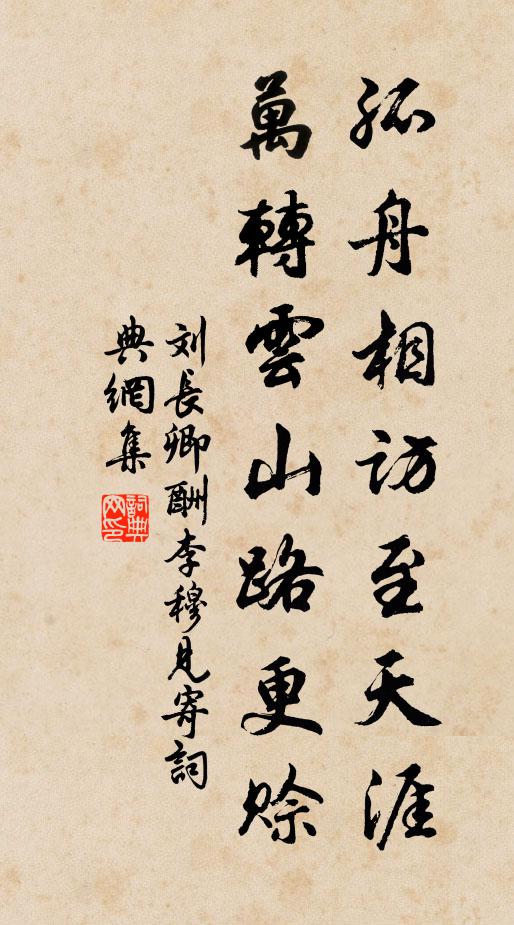 孤舟相访至天涯
萬轉雲山路更赊
刘長卿酬李穆見寄詞
典網集
詞典网印